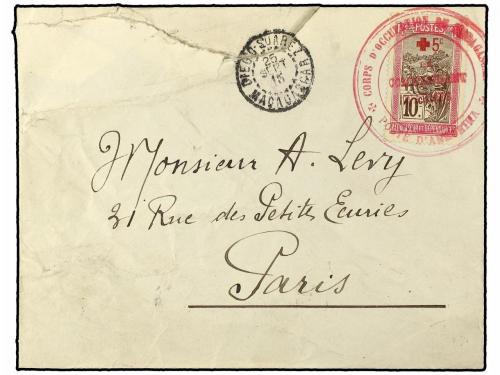 DIEGO-SUAREZ
25
15
MADAGASCAR
CORPS D'OCCUPATION DE MADAGASCAR
POSTES
5c
LE
COMMANDANT
10c
POSTE D'ANTSIRANA
Monsieur A. Levy
31 Rue des Petites Ecuries
Paris